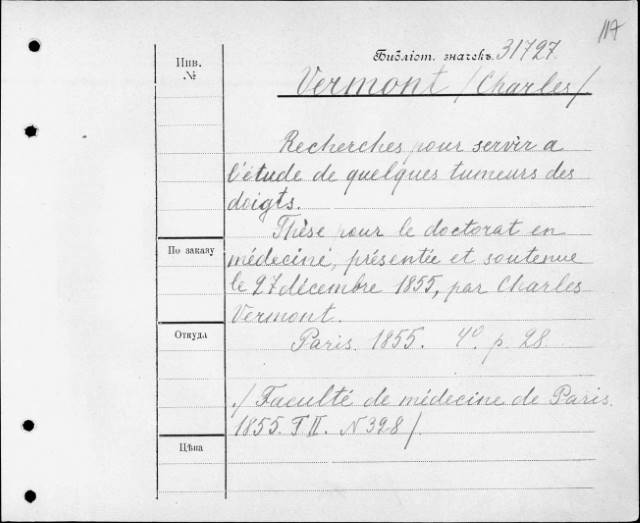 117
Библіот. значекъ. 31727.
Инв.
№
Vermont /Charles/
Recherches pour servir a
l'étude de quelques tumeurs des
doigts.
Thèse pour le doctorat en
По заказу
médeciné, présentée et soutenue
le 27 décembre 1855, par Charles
Vermont.
Откуда
Paris. 1855. 4º. p. 28.
/Faculté de médecine de Paris.
1855. T II. N 328/
Цѣна